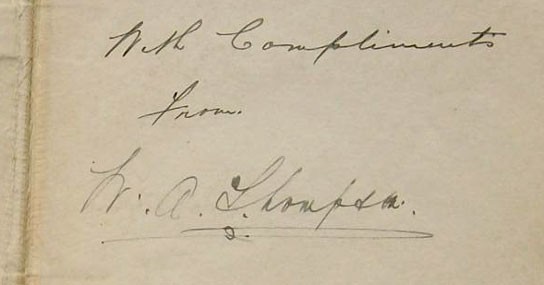 With Compliments
From.
W. A. Thompson.